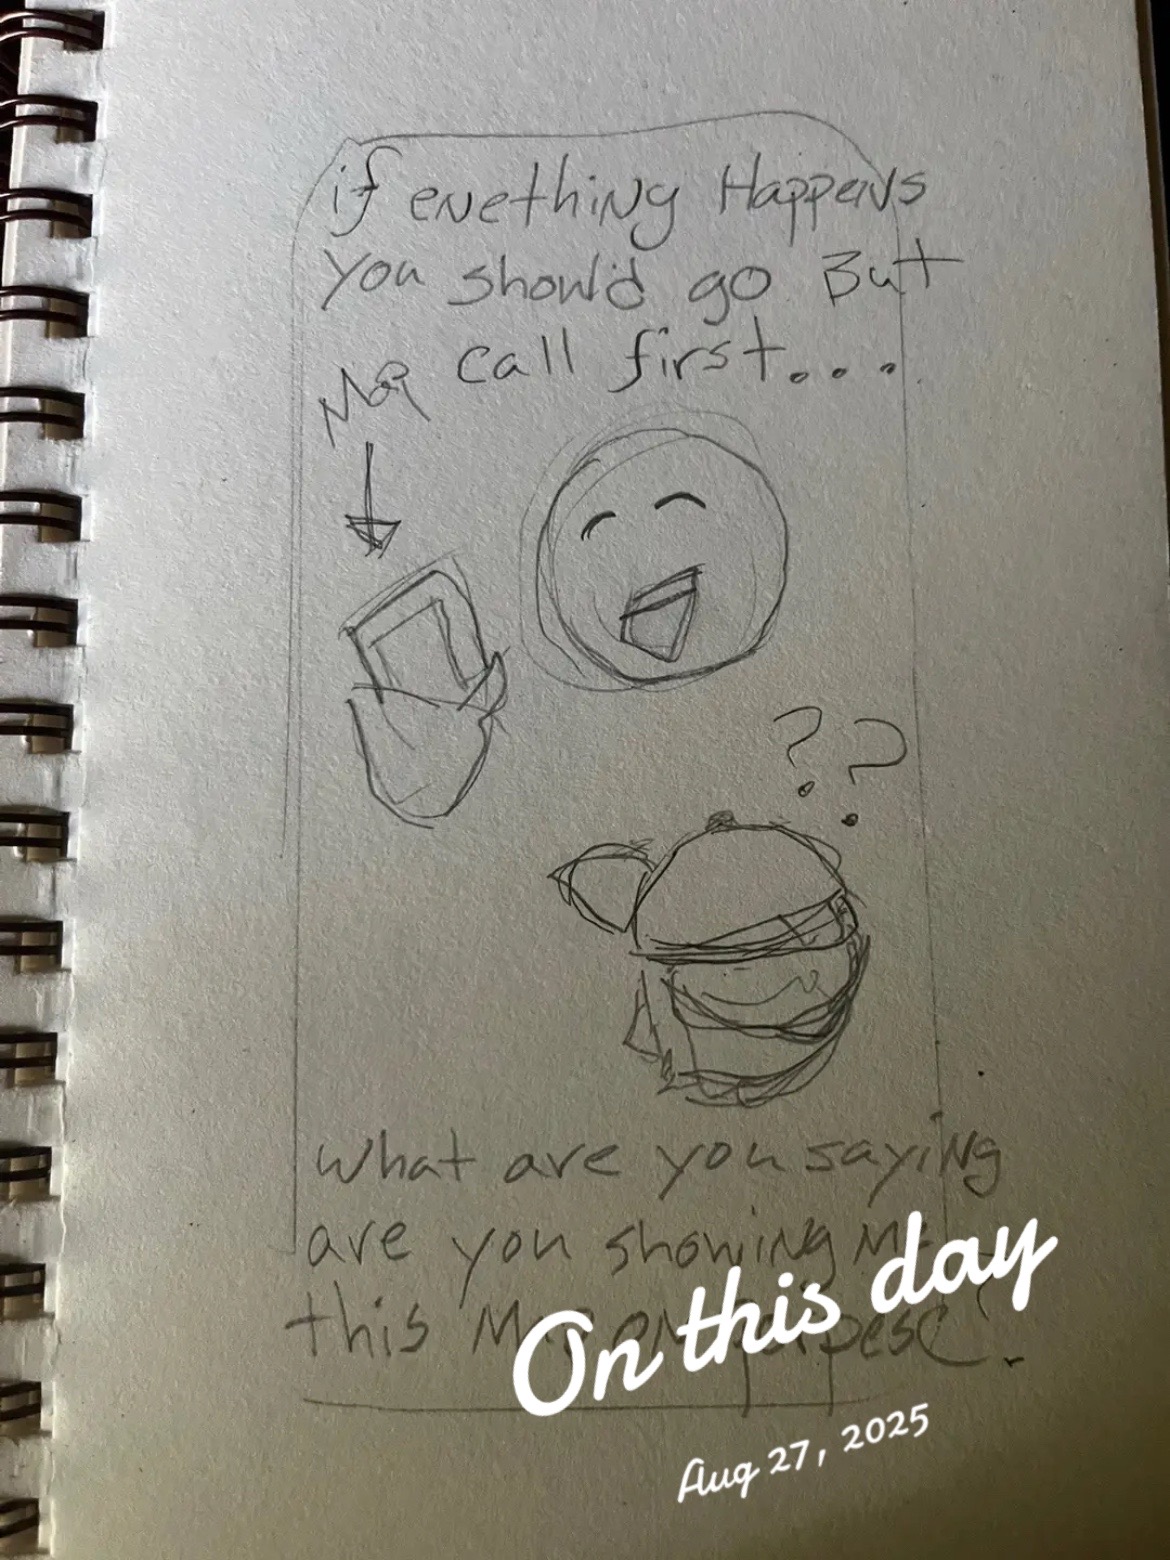 if enething Happens
you should go But
call first...
Map
??
what are you saying
are you showing Me
this Map on
On this day
Aug 27, 2025